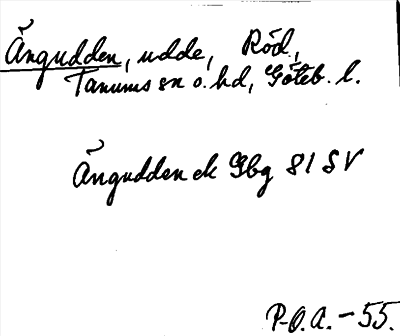 Ängudden, udde, Röd,
Tanums sn o. hd, Göteb. l.
Ängudden ek Gbg 81 SV
P.O.A. -55.